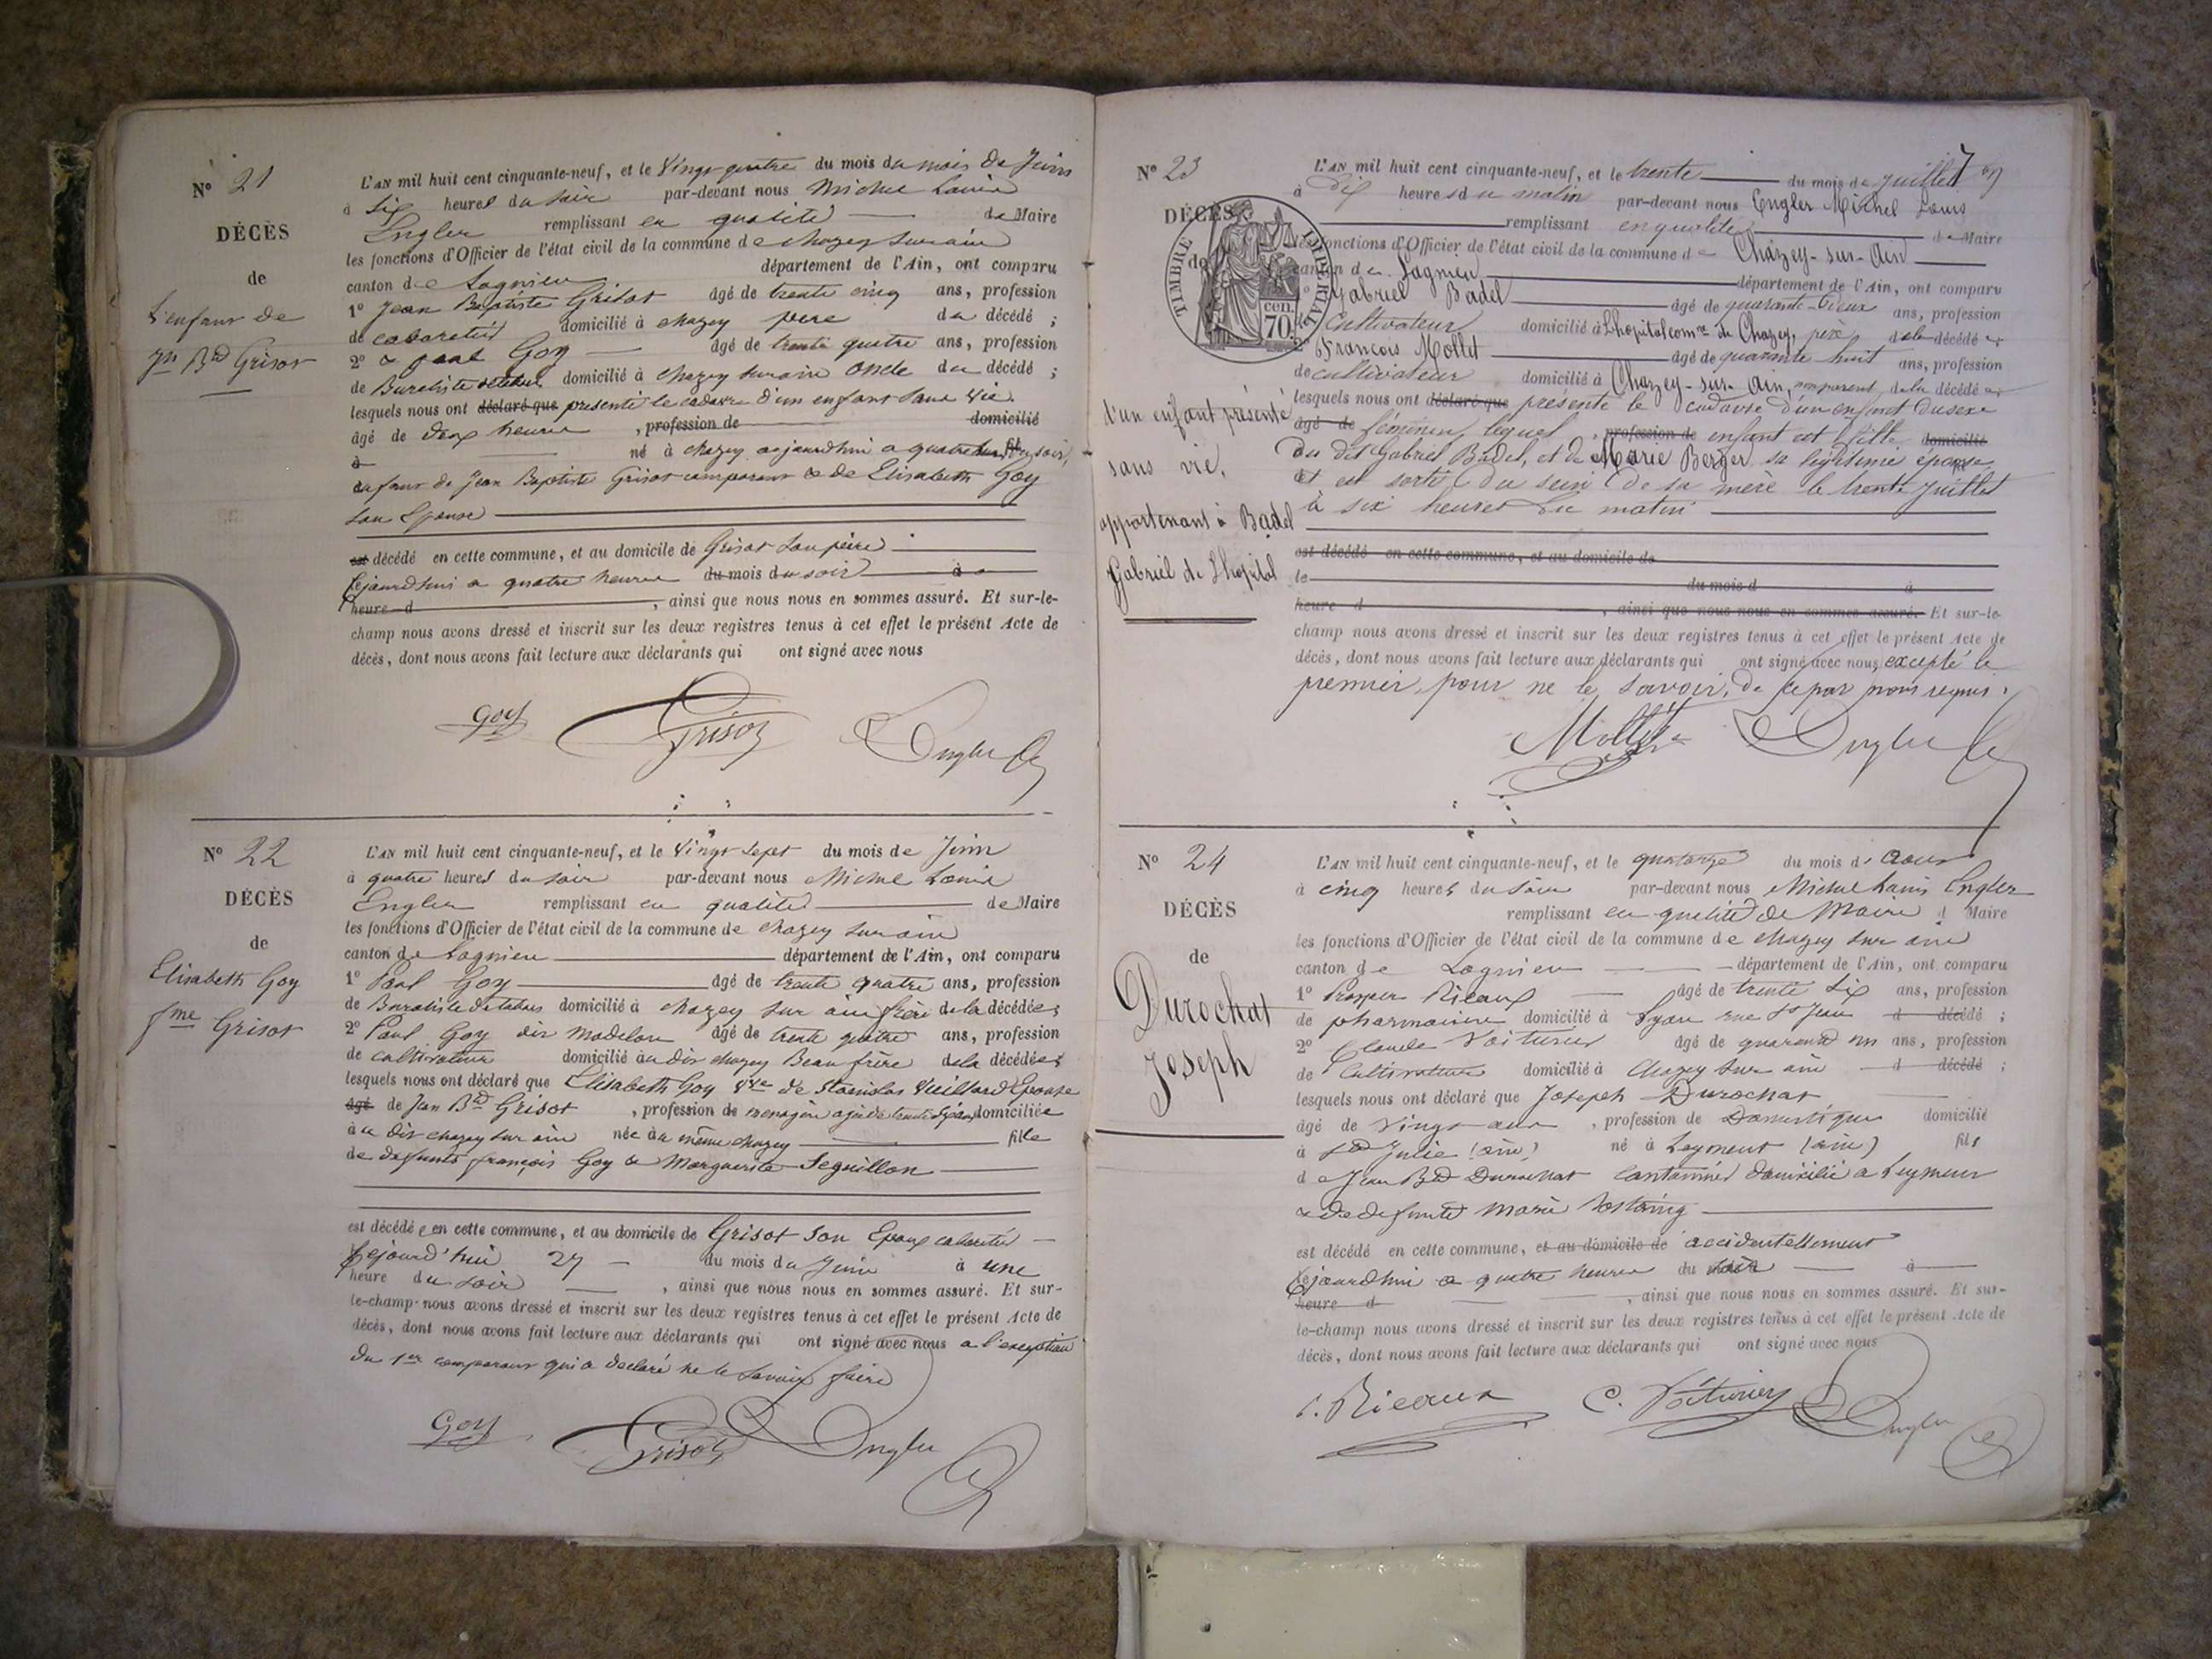 N° 21
DÉCÈS
de
L'enfant de
Jn Btd Grisot
L'AN mil huit cent cinquante-neuf, et le Vingt quatre du mois du mois de Juin
à six heures du soir par-devant nous Michel Louis
Engler remplissant en qualité de Maire
les fonctions d'Officier de l'état civil de la commune de chazey sur ain
canton de Lagnieu département de l'Ain, ont comparu
1° Jean Baptiste Grisot âgé de trente cinq ans, profession
de cabaretier domicilié à chazey pere du décédé ;
2° & paul Goy âgé de trente quatre ans, profession
de Buraliste domicilié à chazey sur ain oncle du décédé ;
lesquels nous ont déclaré que presenté le cadavre d'un enfant sans vie
âgé de deux heures , profession de domicilié
à né à chazey aujourdhui a quatre heures du soir, fil
enfant de Jean Baptiste Grisot comparant & de Elisabeth Goy
son Epouse
est décédé en cette commune, et au domicile de Grisot son père
cejourdhui a quatre heures du mois du soir à
heure d , ainsi que nous nous en sommes assuré. Et sur-le-
champ nous avons dressé et inscrit sur les deux registres tenus à cet effet le présent Acte de
décès, dont nous avons fait lecture aux déclarants qui ont signé avec nous
Goy Grisot Engler
N° 22
DÉCÈS
de
Elisabeth Goy
fme Grisot
L'AN mil huit cent cinquante-neuf, et le Vingt sept du mois de Juin
à quatre heures du soir par-devant nous Michel Louis
Engler remplissant en qualité de Maire
les fonctions d'Officier de l'état civil de la commune de chazey sur ain
canton de Lagnieu département de l'Ain, ont comparu
1° Paul Goy âgé de trente quatre ans, profession
de Buraliste de tabac domicilié à chazey sur ain frère de la décédée ;
2° Paul Goy dit Madelon âgé de trente quatre ans, profession
de cultivateur domicilié au dit chazey Beau frère de la décédée ;
lesquels nous ont déclaré que Elisabeth Goy Vve de Stanislas Vieillard Epouse
âgé de Jean Btd Grisot , profession de menagère agée de trente six ans, domiciliée
à u dit chazey sur ain née à u même chazey fille
de defunts françois Goy & Marguerite Seguillon
est décédée en cette commune, et au domicile de Grisot son Epoux cabaretier
cejourd'hui 27 du mois du Juin à une
heure du soir , ainsi que nous nous en sommes assuré. Et sur-
le-champ nous avons dressé et inscrit sur les deux registres tenus à cet effet le présent Acte de
décès, dont nous avons fait lecture aux déclarants qui ont signé avec nous a l'exception
du 1er comparant qui a declaré ne le savoir faire
Goy Grisot Engler
N° 23
DÉCÈS
de
TIMBRE IMPÉRIAL
70 cen.
d'un enfant présenté
sans vie,
appartenant à Badel
Gabriel de Lhopital
7
L'AN mil huit cent cinquante-neuf, et le trente du mois de Juillet
à dix heures du matin par-devant nous Engler Michel Louis
remplissant en qualité de Maire
les fonctions d'Officier de l'état civil de la commune de Chazey-sur-Ain
canton de Lagnieu département de l'Ain, ont comparu
1° Gabriel Badel âgé de quarante-deux ans, profession
de Cultivateur domicilié à Lhopital comne de Chazey, père de la décédée
2° François Mollet âgé de quarante huit ans, profession
de cultivateur domicilié à Chazey-sur-Ain, non parent de la décédée
lesquels nous ont déclaré que présenté le cadavre d'un enfant du sexe
âgé de féminin, lequel , profession de enfant est fille domicilié
du dit Gabriel Badel, et de Marie Berger sa légitime épouse,
et est sorti du sein de sa mère le trente Juillet
à six heures du matin
est décédé en cette commune, et au domicile de
le du mois d à
heure d , ainsi que nous nous en sommes assuré. Et sur-le-
champ nous avons dressé et inscrit sur les deux registres tenus à cet effet le présent Acte de
décès, dont nous avons fait lecture aux déclarants qui ont signé avec nous, excepté le
premier, pour ne le savoir, de ce par nous requis.
Mollet Engler
N° 24
DÉCÈS
de
Durochat
Joseph
L'AN mil huit cent cinquante-neuf, et le quatorze du mois d'Aout
à cinq heures du soir par-devant nous Michel Louis Engler
remplissant en qualité de Maire d Maire
les fonctions d'Officier de l'état civil de la commune de chazey sur ain
canton de Lagnieu département de l'Ain, ont comparu
1° Prosper Ricaux âgé de trente six ans, profession
de pharmacien domicilié à Lyon rue St Jean d décédé ;
2° Claude Voiturier âgé de quarante un ans, profession
de Cultivateur domicilié à Chazey sur ain d décédé ;
lesquels nous ont déclaré que Joseph Durochat
âgé de vingt ans , profession de Domestique domicilié
à Ste Julie (ain) né à Leyment (ain) fils
de Jean Btd Durochat cantonnier domicilié a Leyment
& de defunte Marie
est décédé en cette commune, et au domicile de accidentellement
cejourdhui a quatre heures du soir à
heure d , ainsi que nous nous en sommes assuré. Et sur-
le-champ nous avons dressé et inscrit sur les deux registres tenus à cet effet le présent Acte de
décès, dont nous avons fait lecture aux déclarants qui ont signé avec nous
P. Ricaux C. Voiturier Engler